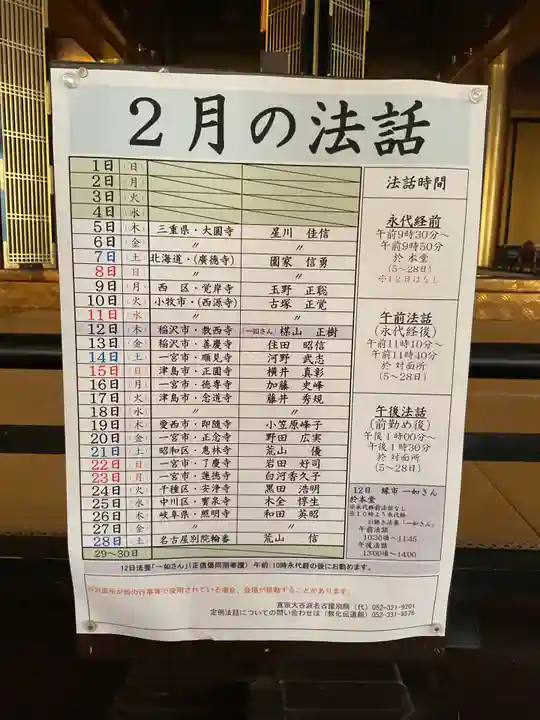 2月の法話
1日 日
2日 月
3日 火
4日 水
5日 木 三重県・大圓寺 星川 佳信
6日 金 〃 〃
7日 土 北海道・(廣徳寺) 圓家 信勇
8日 日 〃 〃
9日 月 西 区・覚岸寺 玉野 正聡
10日 火 小牧市・(西源寺) 古塚 正覚
11日 水 〃 〃
12日 木 稲沢市・教西寺 (一如さん) 楳山 正樹
13日 金 稲沢市・善慶寺 住田 昭信
14日 土 一宮市・順見寺 河野 武志
15日 日 津島市・正圓寺 横井 真彰
16日 月 一宮市・徳専寺 加藤 史峰
17日 火 津島市・念道寺 藤井 秀規
18日 水 〃 〃
19日 木 愛西市・即随寺 小笠原峰子
20日 金 一宮市・正念寺 野田 広実
21日 土 昭和区・恵林寺 荒山 優
22日 日 一宮市・了慶寺 岩田 好司
23日 月 一宮市・蓮徳寺 白河香久子
24日 火 千種区・安浄寺 黒田 浩明
25日 水 中川区・寳泉寺 木全 惇生
26日 木 岐阜県・照明寺 和田 英昭
27日 金 〃 〃
28日 土 名古屋別院輪番 荒山 信
29~30日
法話時間
永代経前
午前9時30分~
午前9時50分
於 本堂
(5~28日)
※12日はなし
午前法話
(永代経後)
午前11時10分~
午前11時40分
於 対面所
(5~28日)
午後法話
(前勤め後)
午後1時00分~
午後1時30分
於 対面所
(5~28日)
12日 縁市 一如さん
於本堂
※永代経前法話なし
※10時より永代経
引続き法要「一如さん」
午前法話
10:30~11:45
午後法話
13:00~14:00
12日法要「一如さん」(正信偈同朋奉讃) 午前10時永代経の後にお勤めます。
※対面所が他の行事等で使用されている場合、会場が移動することがあります。
真宗大谷派名古屋別院(代)052-321-9201
定例法話についての問い合わせは(教化伝道部)052-331-9576